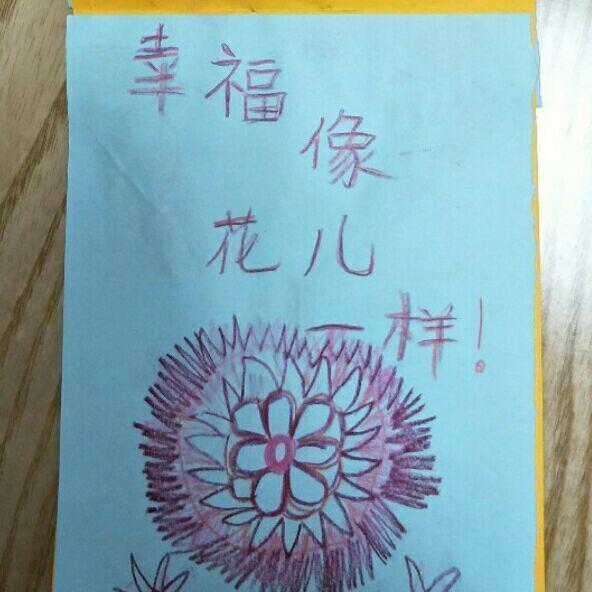 幸福
像
花儿
一样!